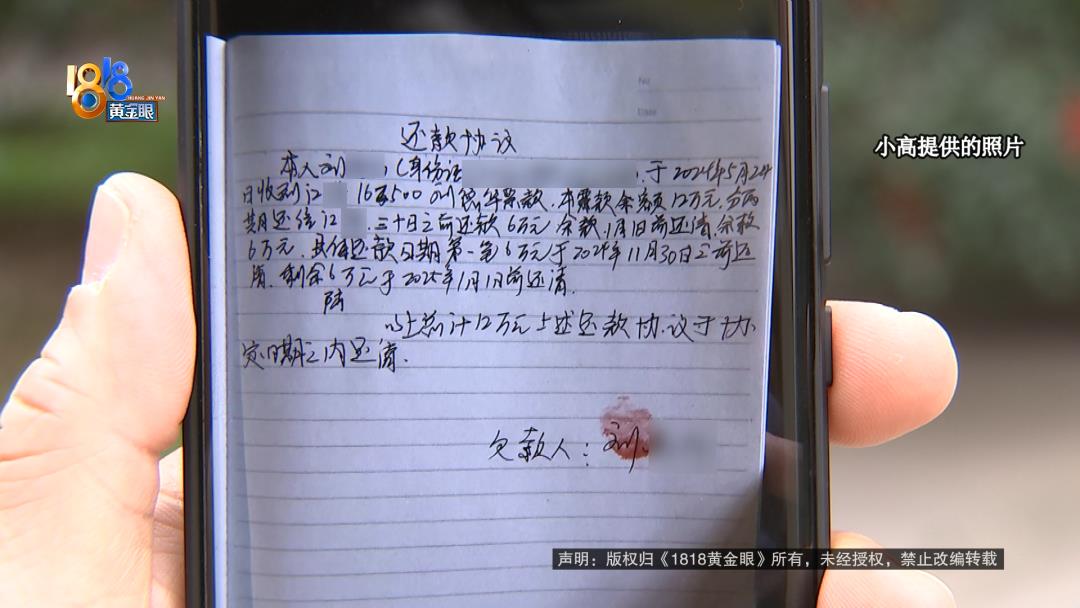 1818
HUANG JIN YAN
黄金眼
小高提供的照片
No
Date
还款协议
本人刘 ，（身份证 ，于2024年5月24
日收到江 16万500 款，本 款余额12万元，分两
期还给江 ，三十日之前还款6万元 余款1月1日前还清，余款
6万元，具体还款日期第一笔6万元于2024年11月30日之前还
清，剩余6万元于2025年1月1日前还清．
陆
以上总计12万元上述还款协议于协
定日期之内还清．
欠款人：刘
声明：版权归《1818黄金眼》所有，未经授权，禁止改编转载